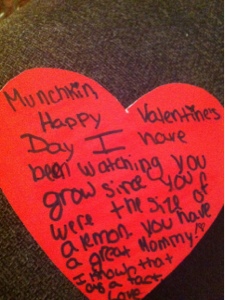 Munchkin
Happy Valentine's
Day I have
been watching you
grow since you
were the size of
a lemon. you have
a great Mommy!
I know that
as a fact.
Love